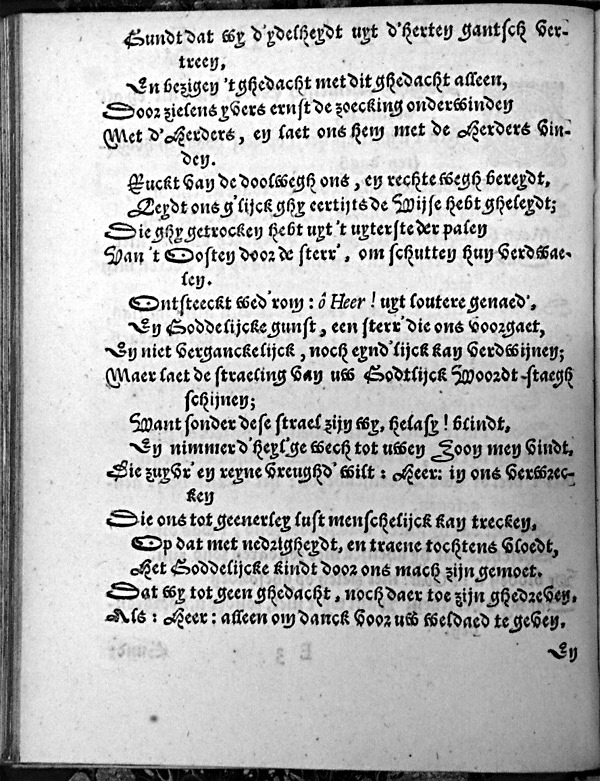 Gundt dat wy d'ydelheydt uyt d'herten gantsch ver-
treen,
En bezigen 't ghedacht met dit ghedacht alleen,
Door zielens yvers ernst de zoecking onderwinden
Met d'Herders, en laet ons hem met de Herders vin-
den.
Ruckt van de doolwegh ons, en rechte wegh bereydt,
Leydt ons g'lijck ghy eertijts de Wijse hebt gheleydt;
Die ghy getrocken hebt uyt 't uyterste der palen
Van 't Oosten door de sterr', om schutten hun verdwae-
len.
Ontsteeckt wed'rom: ô Heer! uyt loutere genaed',
En Goddelijcke gunst, een sterr' die ons voorgaet,
En niet verganckelijck, noch eynd'lijck kan verdwijnen;
Maer laet de straeling van uw Godtlijck Woordt staegh
schijnen;
Want sonder dese strael zijn wy, helasy! blindt,
En nimmer d'heyl'ge wech tot uwen Zoon men vindt.
Die zuyvr' en reyne vreughd' wilt: Heer: in ons verwrec-
ken
Die ons tot geenerley lust menschelijck kan trecken,
Op dat met nedrigheydt, en traene tochtens vloedt,
Het Goddelijcke kindt door ons mach zijn gemoet.
Dat wy tot geen ghedacht, noch daer toe zijn ghedreven,
Als: Heer: alleen om danck voor uw weldaed te geven.
En